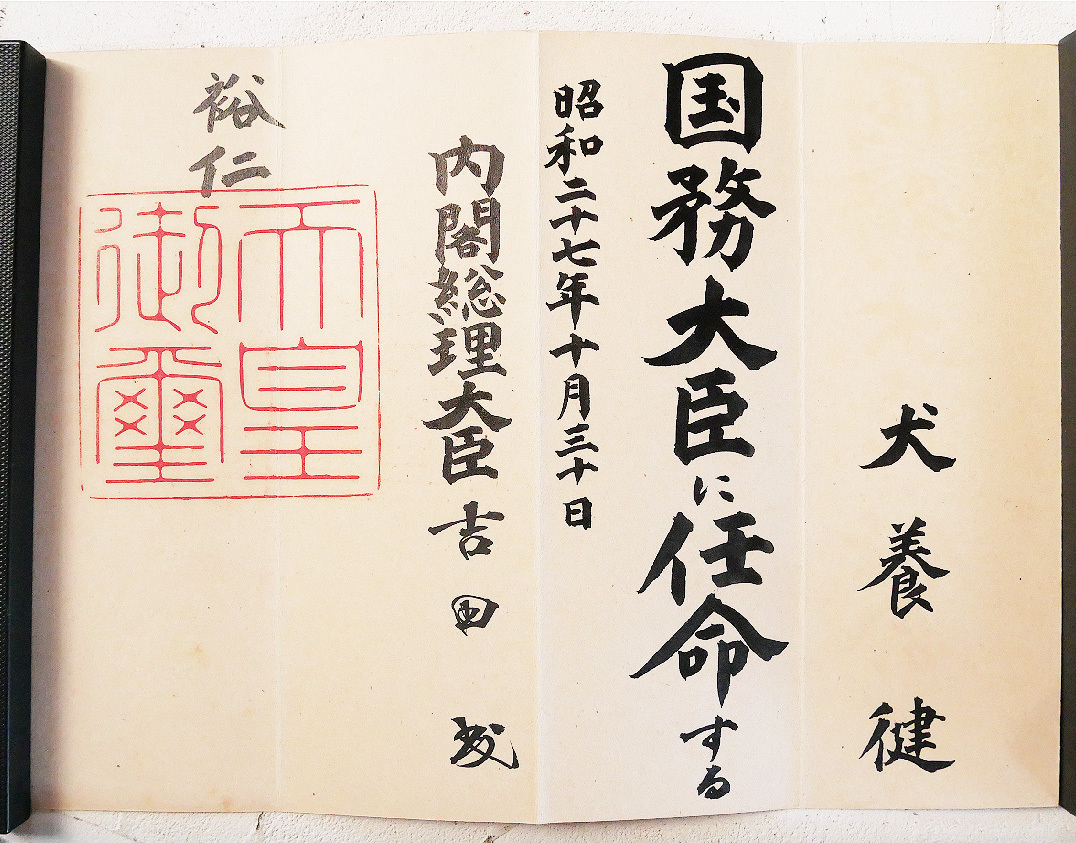 犬養健
国務大臣に任命する
昭和二十七年十月三十日
内閣総理大臣吉田茂
裕仁
天皇
御璽